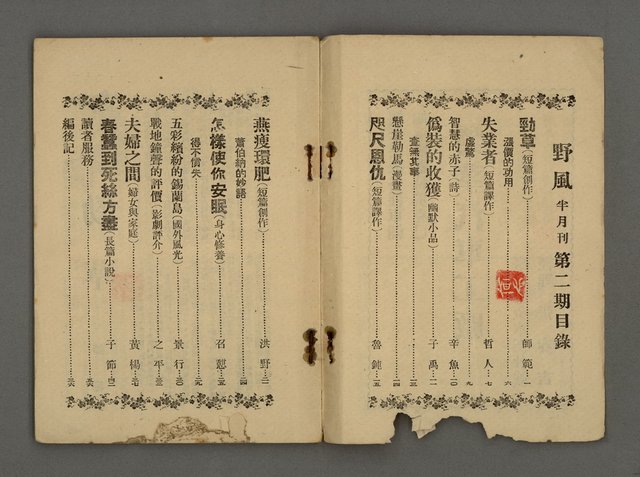 野風 半月刊 第二期目錄
勁草（短篇創作）……師範…一
漲價的功用……六
失業者（短篇譯作）……哲人…七
虛驚……九
智慧的赤子（詩）……辛魚…一〇
偽裝的收獲（幽默小品）……子禹…一二
查無其事……一三
懸崖勒馬（漫畫）……一四
咫尺恩仇（短篇譯作）……魯鈍…一五
燕瘦環肥（短篇創作）……洪野
蕭伯納的妙語
怎樣使你安眠（身心修養）……召懟
得不償失
五彩繽紛的錫蘭島（國外風光）……景行
戰地鐘聲的評價（影劇評介）……之平
夫婦之間（婦女與家庭）……黃楊
春蠶到死絲方盡（長篇小說）……子節
讀者服務
編後記